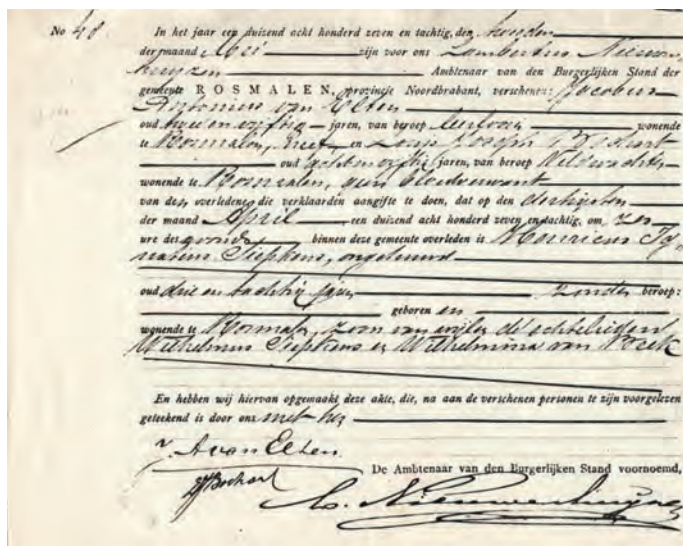 No 48. In het jaar een duizend acht honderd zeven en tachtig, den tweeden
der maand Mei zijn voor ons Lambertus Nieuwen-
huyzen Ambtenaar van den Burgerlijken Stand der
gemeente ROSMALEN, provincie Noordbrabant, verschenen: Jacobus
Antonius van Elten
oud twee en vijftig jaren, van beroep wonende
te Rosmalen, neef en Louis Joseph Bochart
oud acht en vijftig jaren, van beroep Veldwachter
wonende te Rosmalen, geen bloedverwant
van den overledene die verklaarden aangifte te doen, dat op den dertigsten
der maand April een duizend acht honderd zeven en tachtig, om zes
ure des avonds binnen deze gemeente overleden is Mauricus Ig-
natius Siepkens, ongehuwd
oud drie en tachtig jaren zonder beroep:
geboren en
wonende te Rosmalen, zoon van wijlen de echtelieden
Wilhelmus Siepkens en Wilhelmina van Beek
En hebben wij hiervan opgemaakt deze akte, die, na aan de verschenen personen te zijn voorgelezen
geteekend is door ons met hen
J. A van Elten
De Ambtenaar van den Burgerlijken Stand voornoemd,
LJ Bochart
L. Nieuwenhuyzen